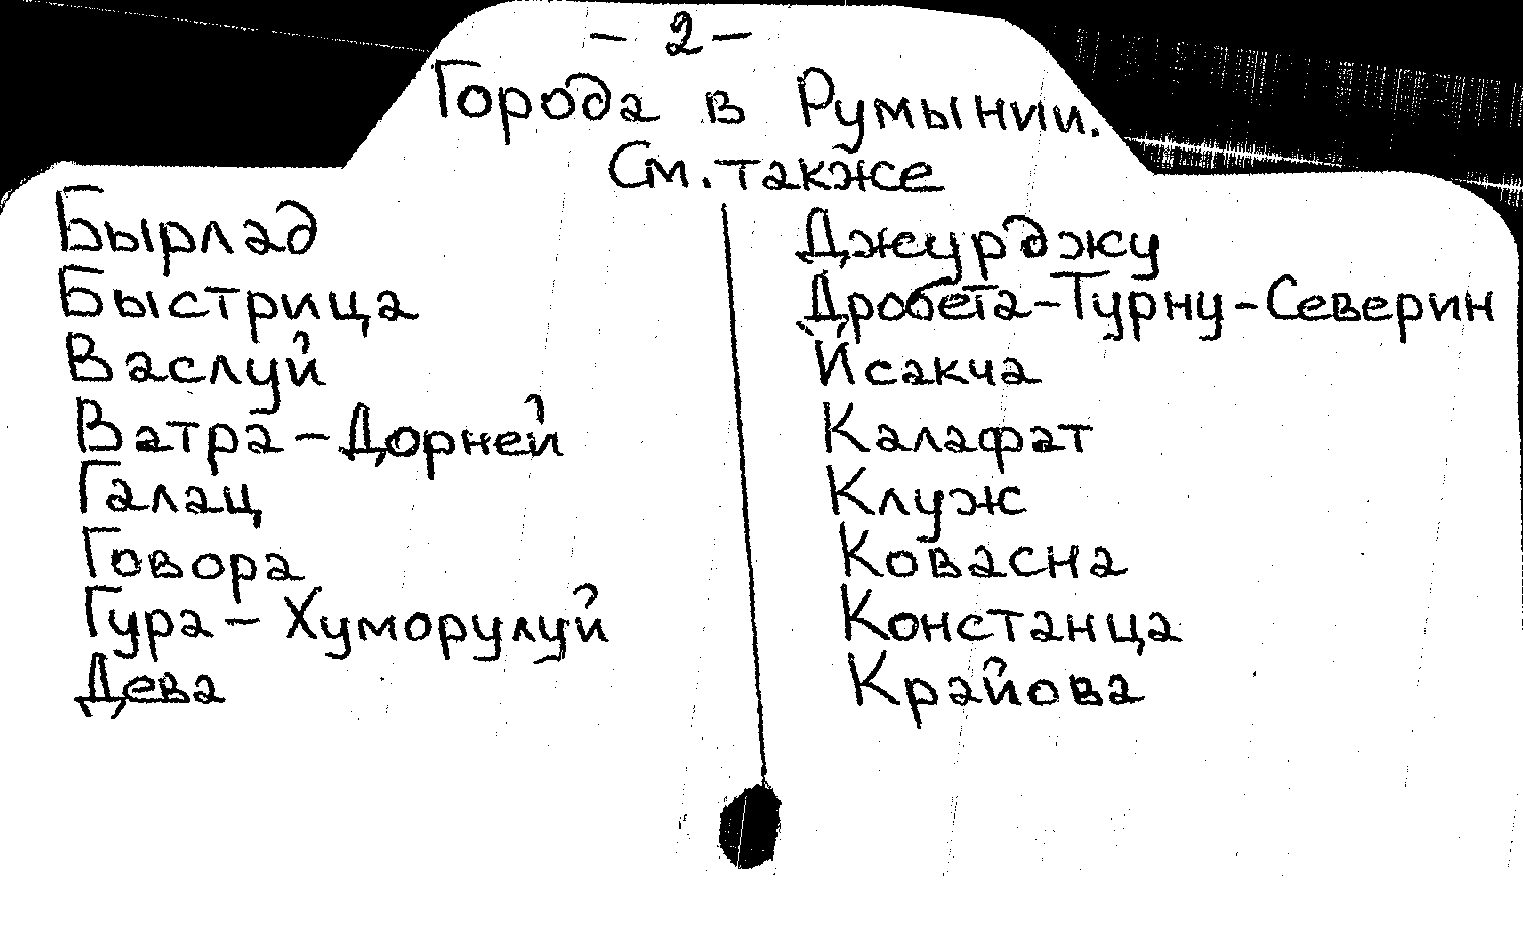 - 2 -
Города в Румынии.
См. также
Бырлад
Быстрица
Васлуй
Ватра-Дорней
Галац
Говора
Гура-Хуморулуй
Дева
Джурджу
Дробета-Турну-Северин
Исакча
Калафат
Клуж
Ковасна
Констанца
Крайова